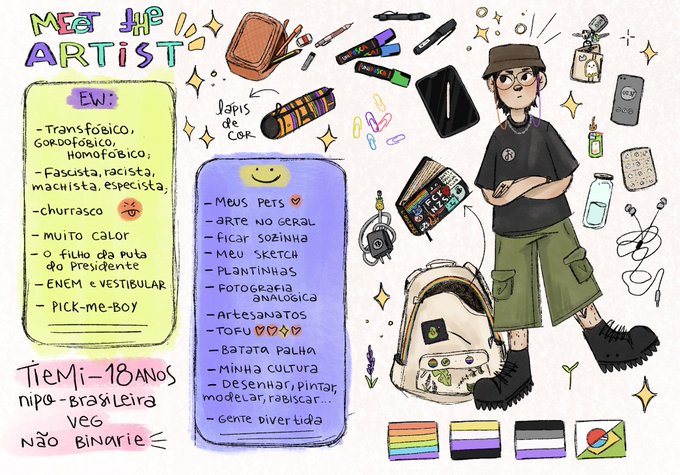 MEET the
ARTiST
EW:
- TRANSFÓBICO,
GORDOFÓBICO,
HOMOFÓBICO;
- FASCISTA, RACISTA,
MACHISTA, ESPECISTA;
- CHURRASCO
- MUITO CALOR
- O FILHO DA PUTA
DO PRESIDENTE
- ENEM E VESTIBULAR
- PICK-ME-BOY
TiEMi - 18 ANOS
nipo-BRASiLEiRA
VEG
NÃO BINARIE
lápis
de
cor
- MEUS PETS
- ARTE NO GERAL
- FICAR SOZINHA
- MEU SKETCH
- PLANTINHAS
- FOTOGRAFIA
ANALÓGICA
- ARTESANATOS
- TOFU
- BATATA PALHA
- MINHA CULTURA
- DESENHAR, PINTAR,
MODELAR, RABISCAR...
- GENTE DIVERTIDA